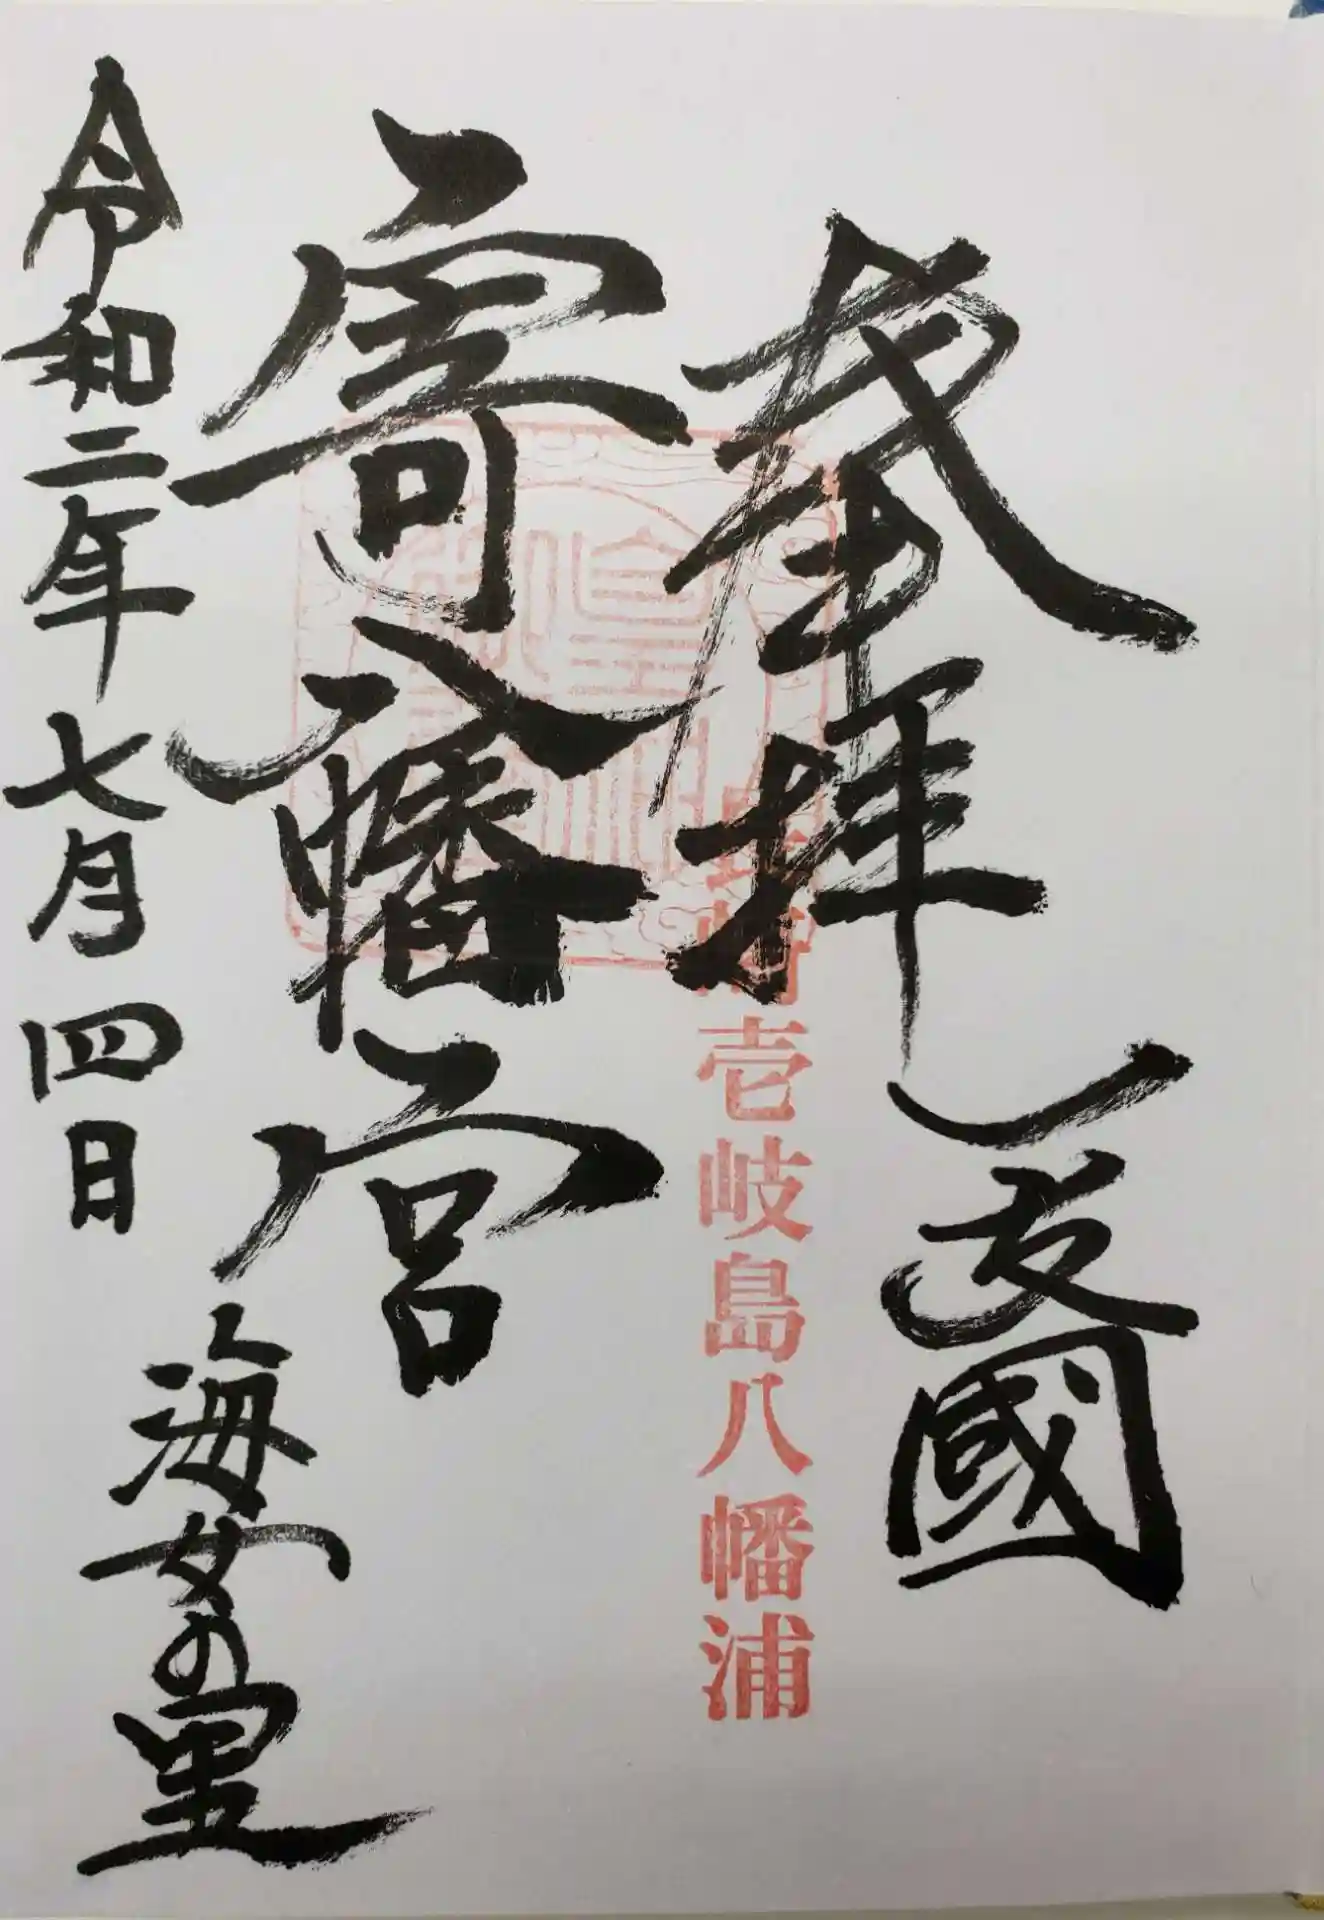 奉拝 一支國
長崎壱岐島八幡浦
寄八幡宮
海女の里
令和二年七月四日